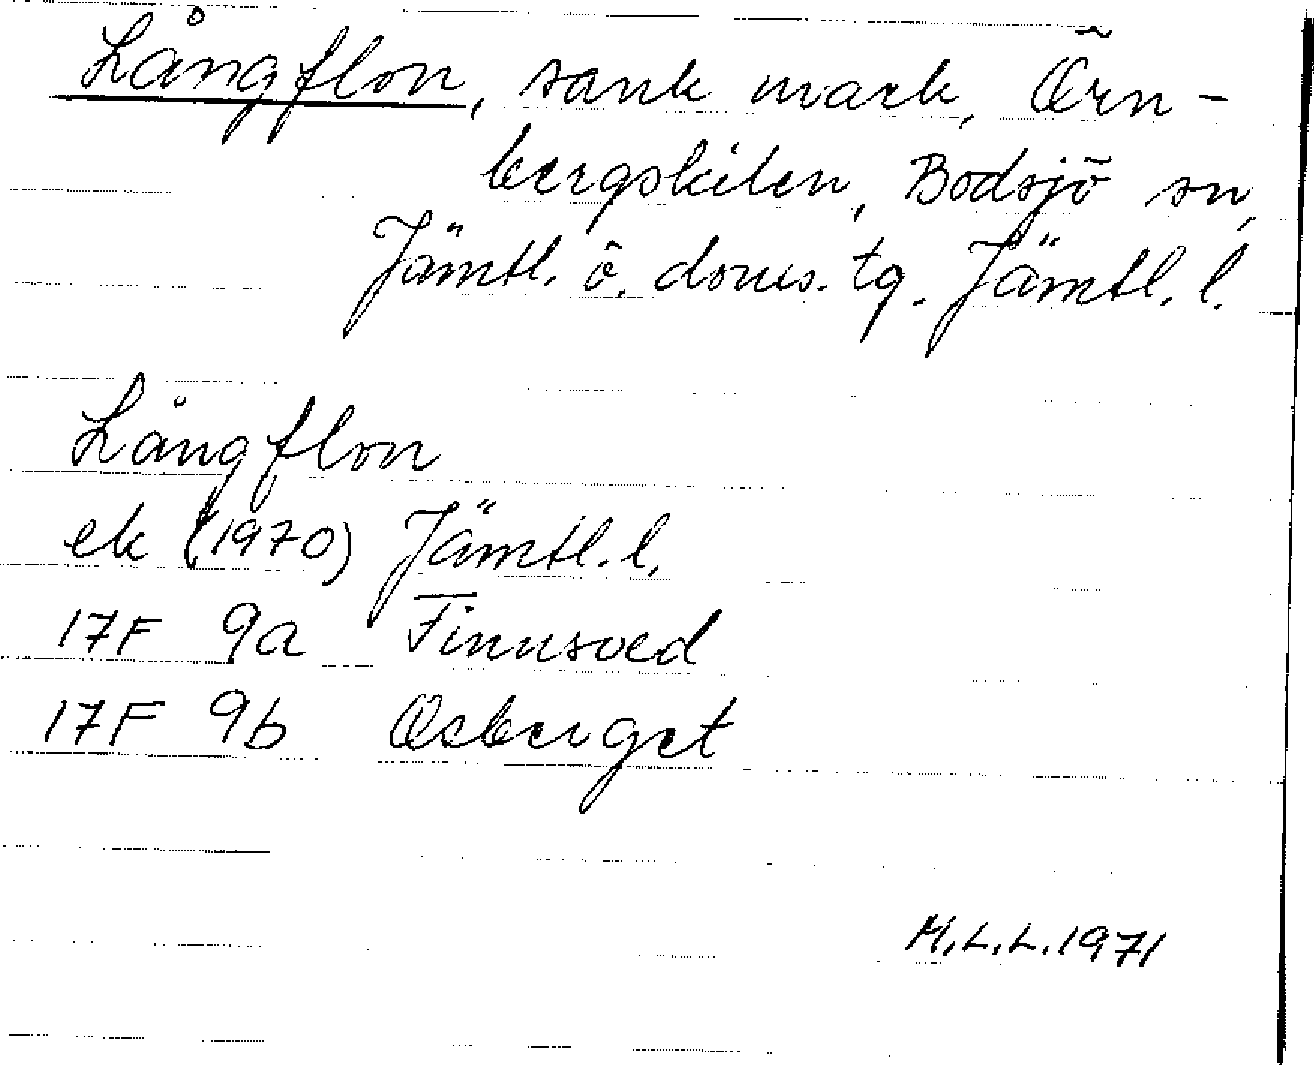 Långflon, sank mark, Örn-
bergskilen, Bodsjö sn,
Jämtl. ö. doms. tg. Jämtl. l.
Långflon
ek (1970) Jämtl. l.
17F 9a Finnsved
17F 9b Åsberget
M.L.L. 1971